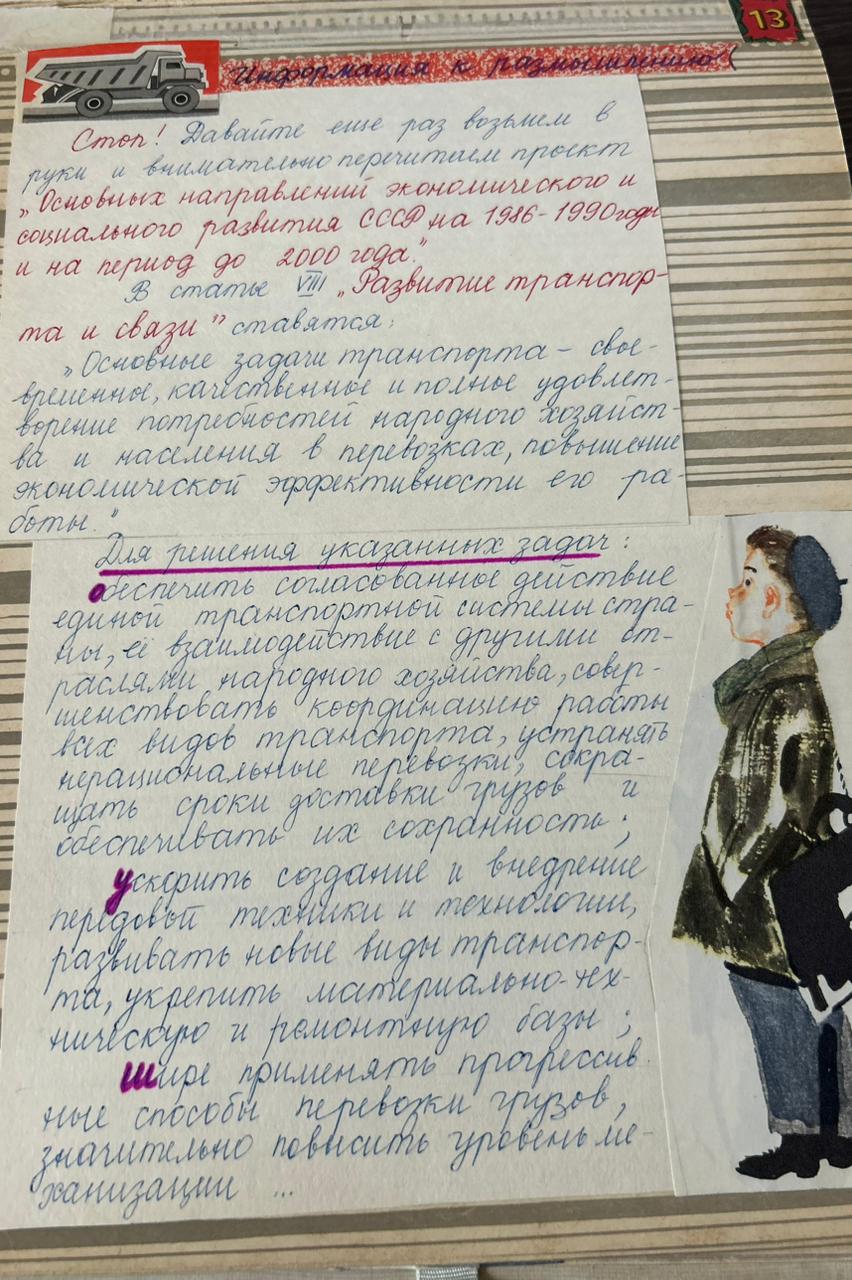 13
Информация к размышлению
Стоп! Давайте еще раз возьмем в
руки и внимательно перечитаем проект
„Основных направлений экономического и
социального развития СССР на 1986-1990 годы
и на период до 2000 года."
В статье VIII „Развитие транспор-
та и связи" ставятся:
„Основные задачи транспорта – свое-
временное, качественное и полное удовлет-
ворение потребностей народного хозяйст-
ва и населения в перевозках, повышение
экономической эффективности его ра-
боты."
Для решения указанных задач:
обеспечить согласованное действие
единой транспортной системы стра-
ны, её взаимодействие с другими от-
раслями народного хозяйства, совер-
шенствовать координацию работы
всех видов транспорта, устранять
нерациональные перевозки, сокра-
щать сроки доставки грузов и
обеспечивать их сохранность;
ускорить создание и внедрение
передовой техники и технологии,
развивать новые виды транспор-
та, укрепить материально-тех-
ническую и ремонтную базы;
шире применять прогрессив
ные способы перевозки грузов,
значительно повысить уровень ме-
ханизации ...